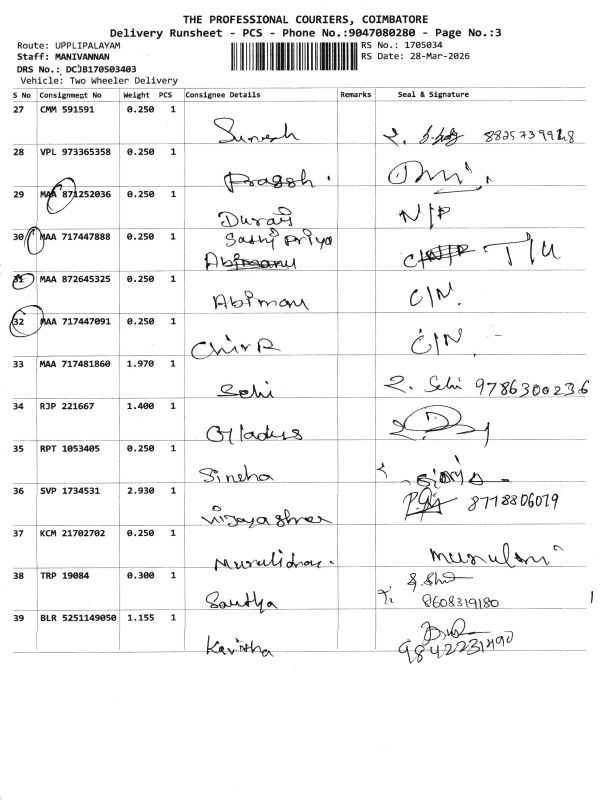 THE PROFESSIONAL COURIERS, COIMBATORE
Delivery Runsheet - PCS - Phone No.:9047080280 - Page No.:3
Route: UPPLIPALAYAM RS No.: 1705034
Staff: MANIVANNAN RS Date: 28-Mar-2026
DRS No.: DCJB170503403
Vehicle: Two Wheeler Delivery
S No Consignment No Weight PCS Consignee Details Remarks Seal & Signature
27 CMM 591591 0.250 1
Suresh
28 VPL 973365358 0.250 1
Pragash.
29 MAA 871252036 0.250 1
Durai N/P
30 MAA 717447888 0.250 1
Sathi Priya
T/U
31 MAA 872645325 0.250 1
Abimanu C/N.
32 MAA 717447091 0.250 1
C/N
33 MAA 717481860 1.970 1
Selvi 9786300236
34 RJP 221667 1.400 1
Gladys
35 RPT 1053405 0.250 1
Sineha
36 SVP 1734531 2.930 1
8778806079
37 KCM 21702702 0.250 1
Muralidhar.
38 TRP 19084 0.300 1
Santhya 8608319180
39 BLR 5251149050 1.155 1
Kavitha